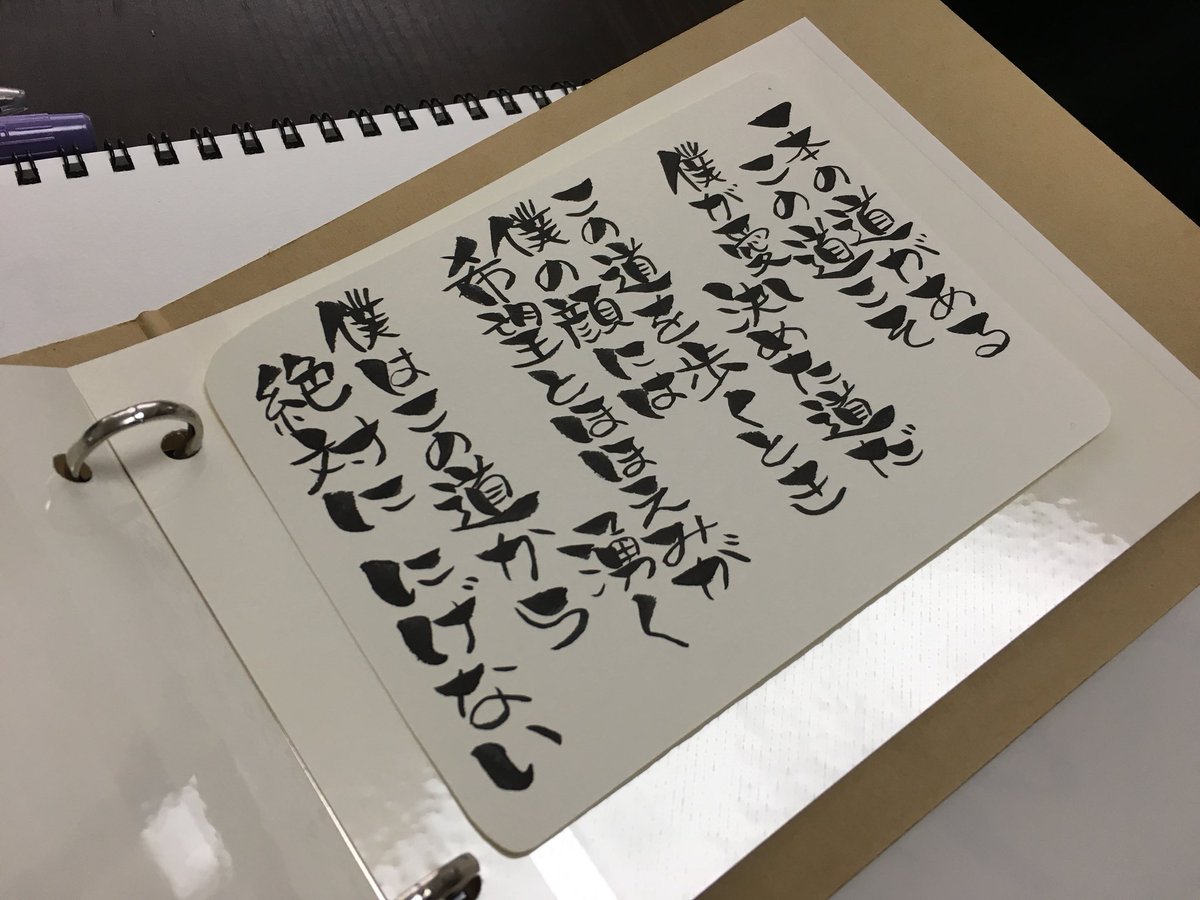 一本の道がある
この道こそ
僕が愛 決めた道だ
この道を歩くとき
僕の顔には
希望とほほえみが
湧く
僕はこの道から
絶対に にげない